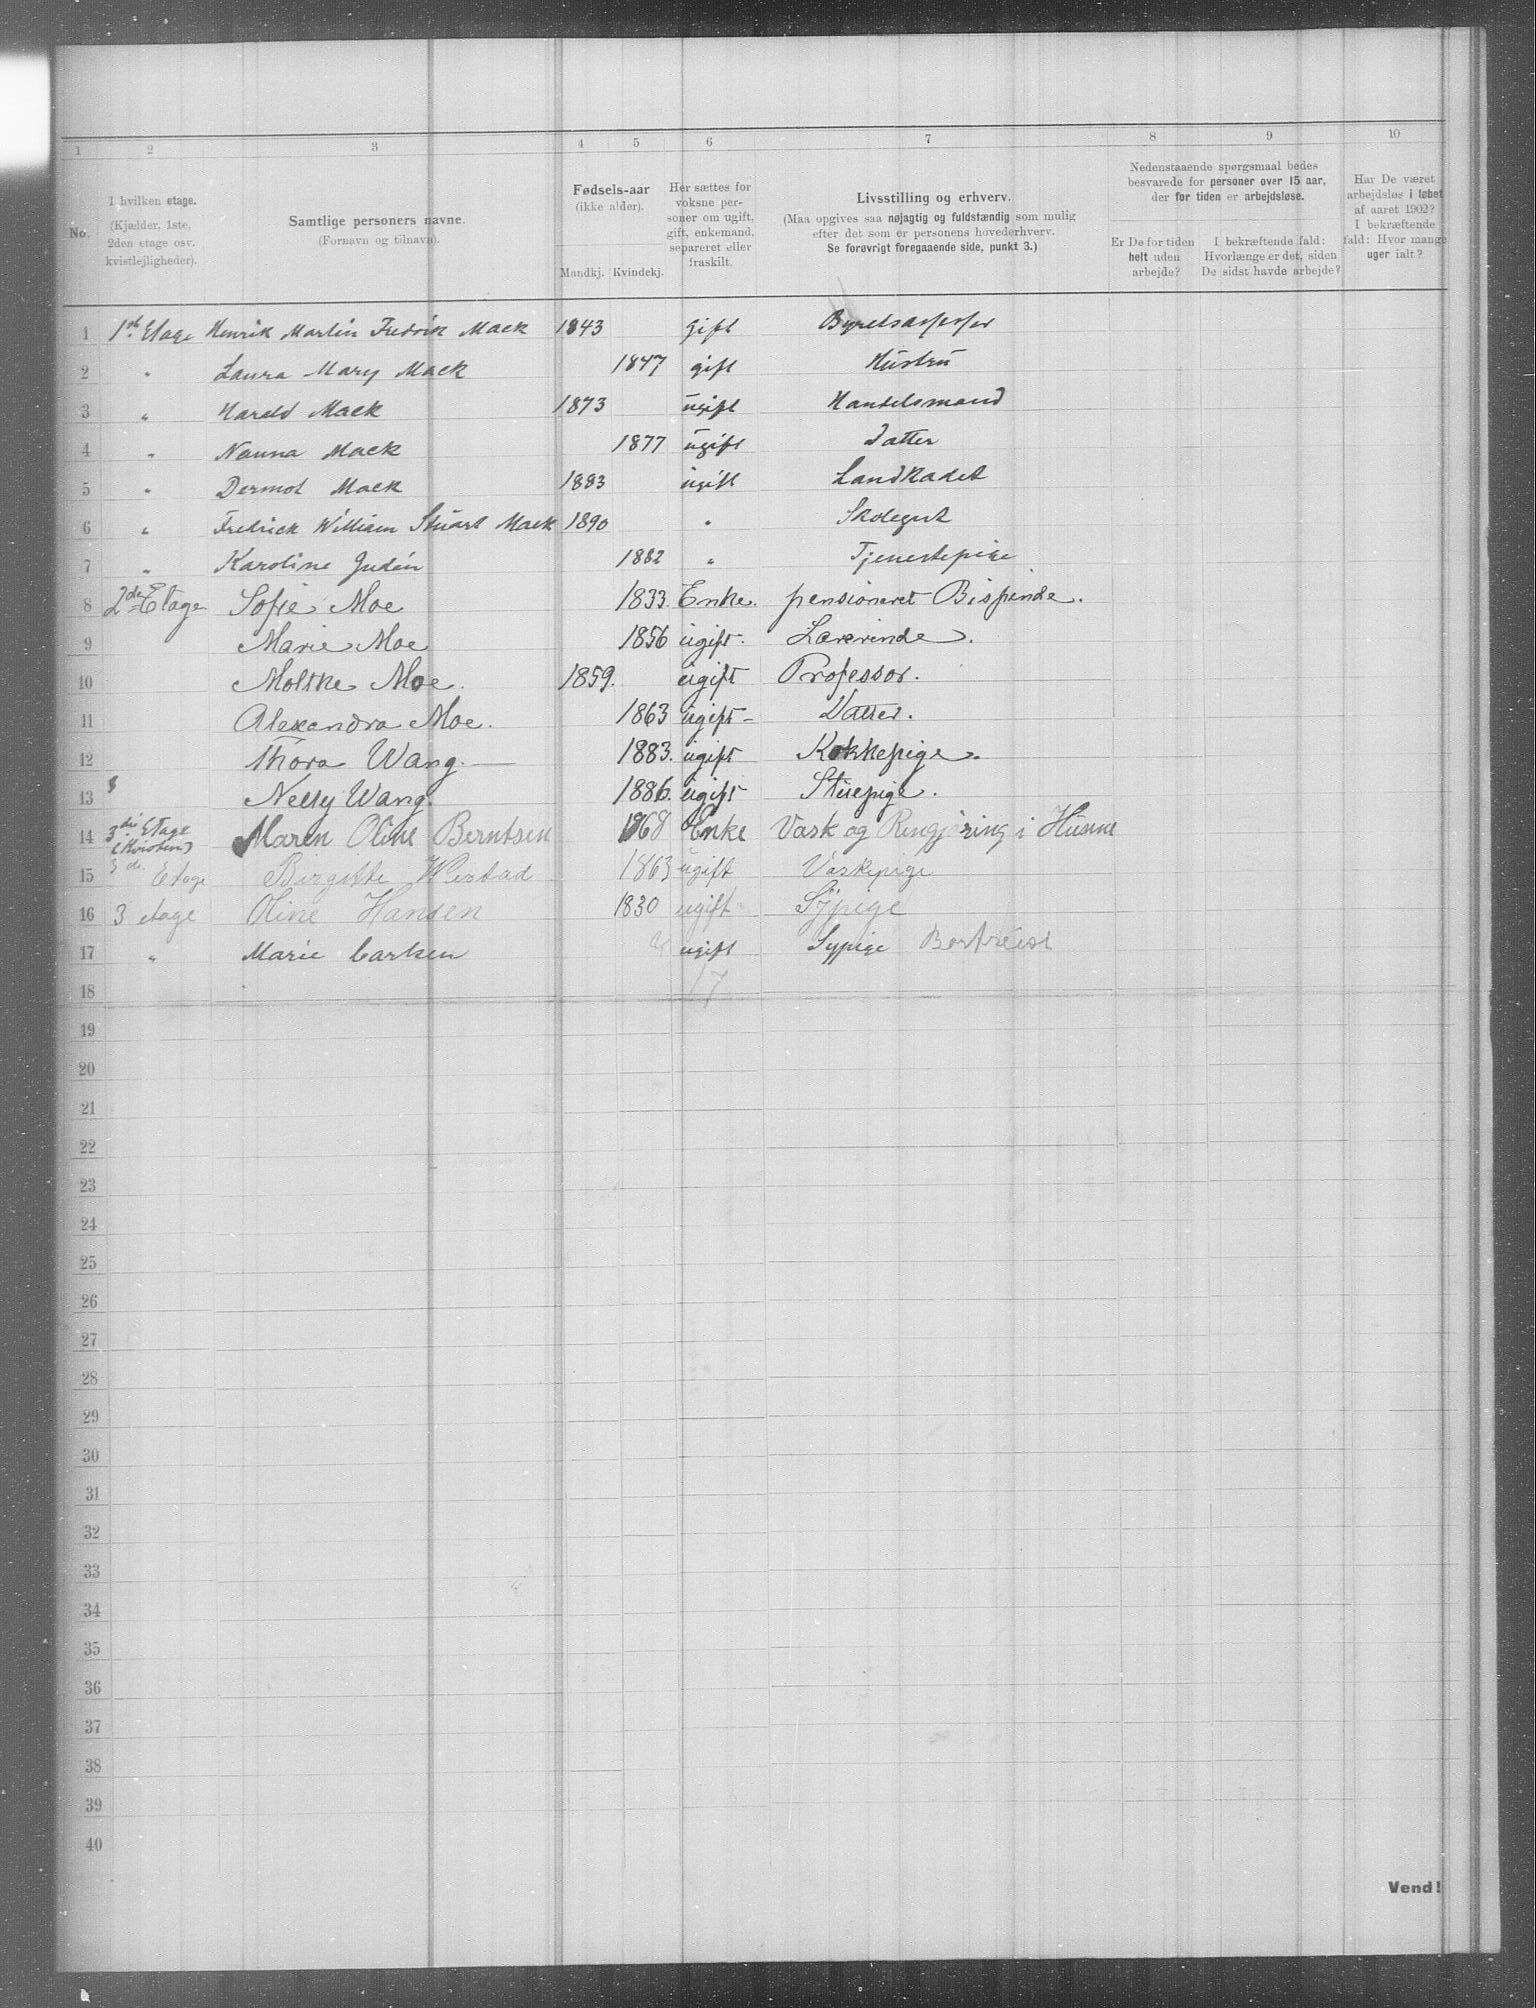 1 2 3 4 5 6 7 8 9 10
No.
I hvilken etage.
(Kjælder, 1ste,
2den etage osv.
kvistlejligheder).
Samtlige personers navne.
(Fornavn og tilnavn).
Fødsels-aar
(ikke alder).
Mandkj. Kvindekj.
Her sættes for
voksne per-
soner om ugift,
gift, enkemand,
separeret eller
fraskilt.
Livsstilling og erhverv.
(Maa opgives saa nøjagtig og fuldstændig som mulig
efter det som er personens hovederhverv.
Se forøvrigt foregaaende side, punkt 3.)
Nedenstaaende spørgsmaal bedes
besvarede for personer over 15 aar,
der for tiden er arbejdsløse.
Er De for tiden
helt uden
arbejde?
I bekræftende fald:
Hvorlænge er det, siden
De sidst havde arbejde?
Har De været
arbejdsløs i løbet
af aaret 1902?
I bekræftende
fald: Hvor mange
uger ialt?
1 1ste Etage Henrik Martin Fredrik Mack 1843 gift Byretsassessor
2 " Laura Mary Mack 1847 gift Hustru
3 " Harald Mack 1873 ugift Handelsmand
4 " Nanna Mack 1877 ugift Datter
5 " Dermot Mack 1883 ugift Landkadet
6 " Fredrick William Stuart Mack 1890 " Skolegut
7 " Karoline Juden 1882 " Tjenestepige
8 2den Etage Sofie Moe 1833 Enke. pensioneret Bispinde.
9 Marie Moe 1856 ugift. Lærerinde.
10 Moltke Moe. 1859. ugift Professor.
11 Alexandra Moe. 1863 ugift- Datter.
12 Thora Wang. — 1883. ugift Kokkepige.
13 Nelly Wang. 1886. ugift Stuepige.
14 3die Etage (Kvisten) Maren Oline Berntsen 1868 Enke Vask og Rengjøring i Husene
15 3de. Etage Birgitte 1863 ugift Vaskepige
16 3 etage Oline Hansen 1830 ugift Sypige
17 " Marie Carlsen ugift Sypige Bortreist
18 17
19
20
21
22
23
24
25
26
27
28
29
30
31
32
33
34
35
36
37
38
39
40
Vend!